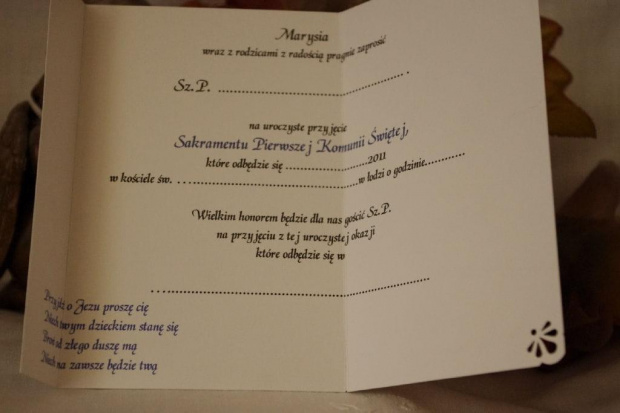 Marysia
wraz z rodzicami z radością pragnie zaprosić
Sz.P. ........................................
na uroczyste przyjęcie
Sakramentu Pierwszej Komunii Świętej,
które odbędzie się ........................2011
w kościele św. ........................................w łodzi o godzinie...........
Wielkim honorem będzie dla nas gościć Sz.P.
na przyjęciu z tej uroczystej okazji
które odbędzie się w
............................................................
Przyjdź o Jezu proszę cię
Niech twym dzieckiem stanę się
Broń od złego duszę mą
Niech na zawsze będzie twą